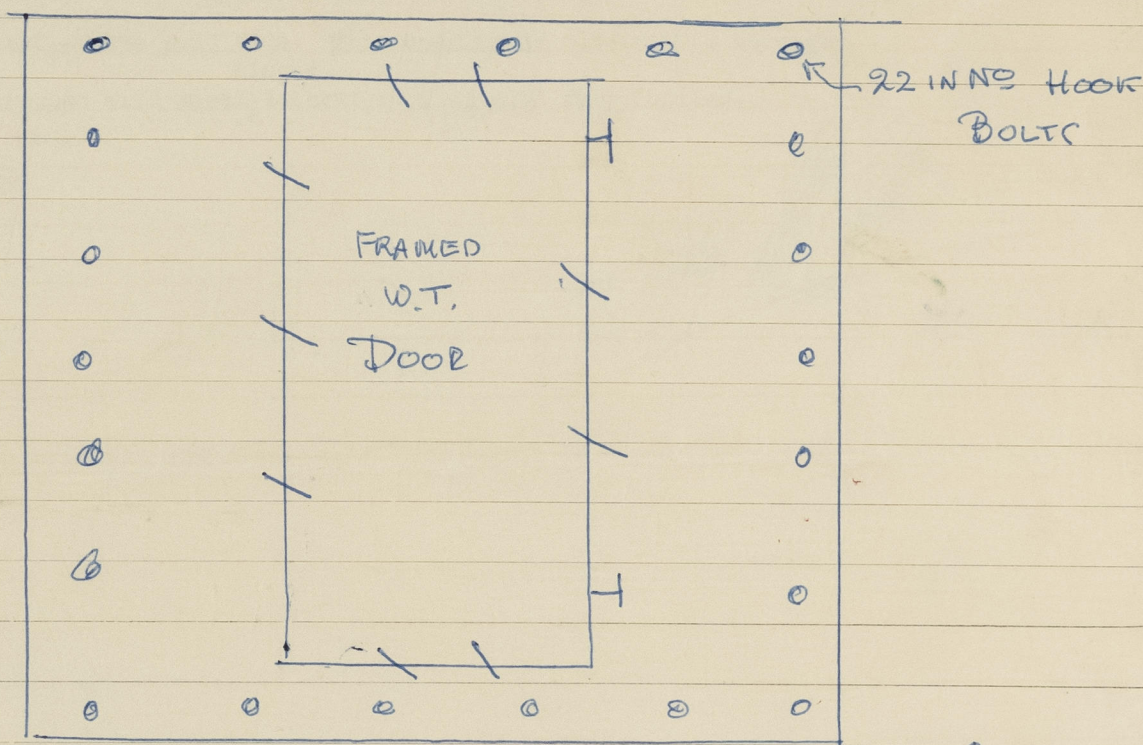 22 IN NO HOOK
BOLTS
FRAMED
W.T.
DOOR